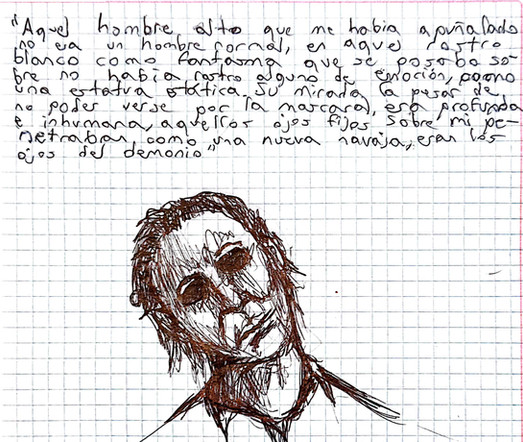 "Aquel hombre alto que me habia apuñalado
no era un hombre normal, en aquel rostro
blanco como fantasma que se posaba so
bre no habia rostro alguno de emoción, como
una estatua estática. Su mirada (a pesar de
no poder verse por la mascara), era profunda
e inhumana, aquellos ojos fijos sobre mi pe-
netraban como una nueva navaja, eran los
ojos del demonio"